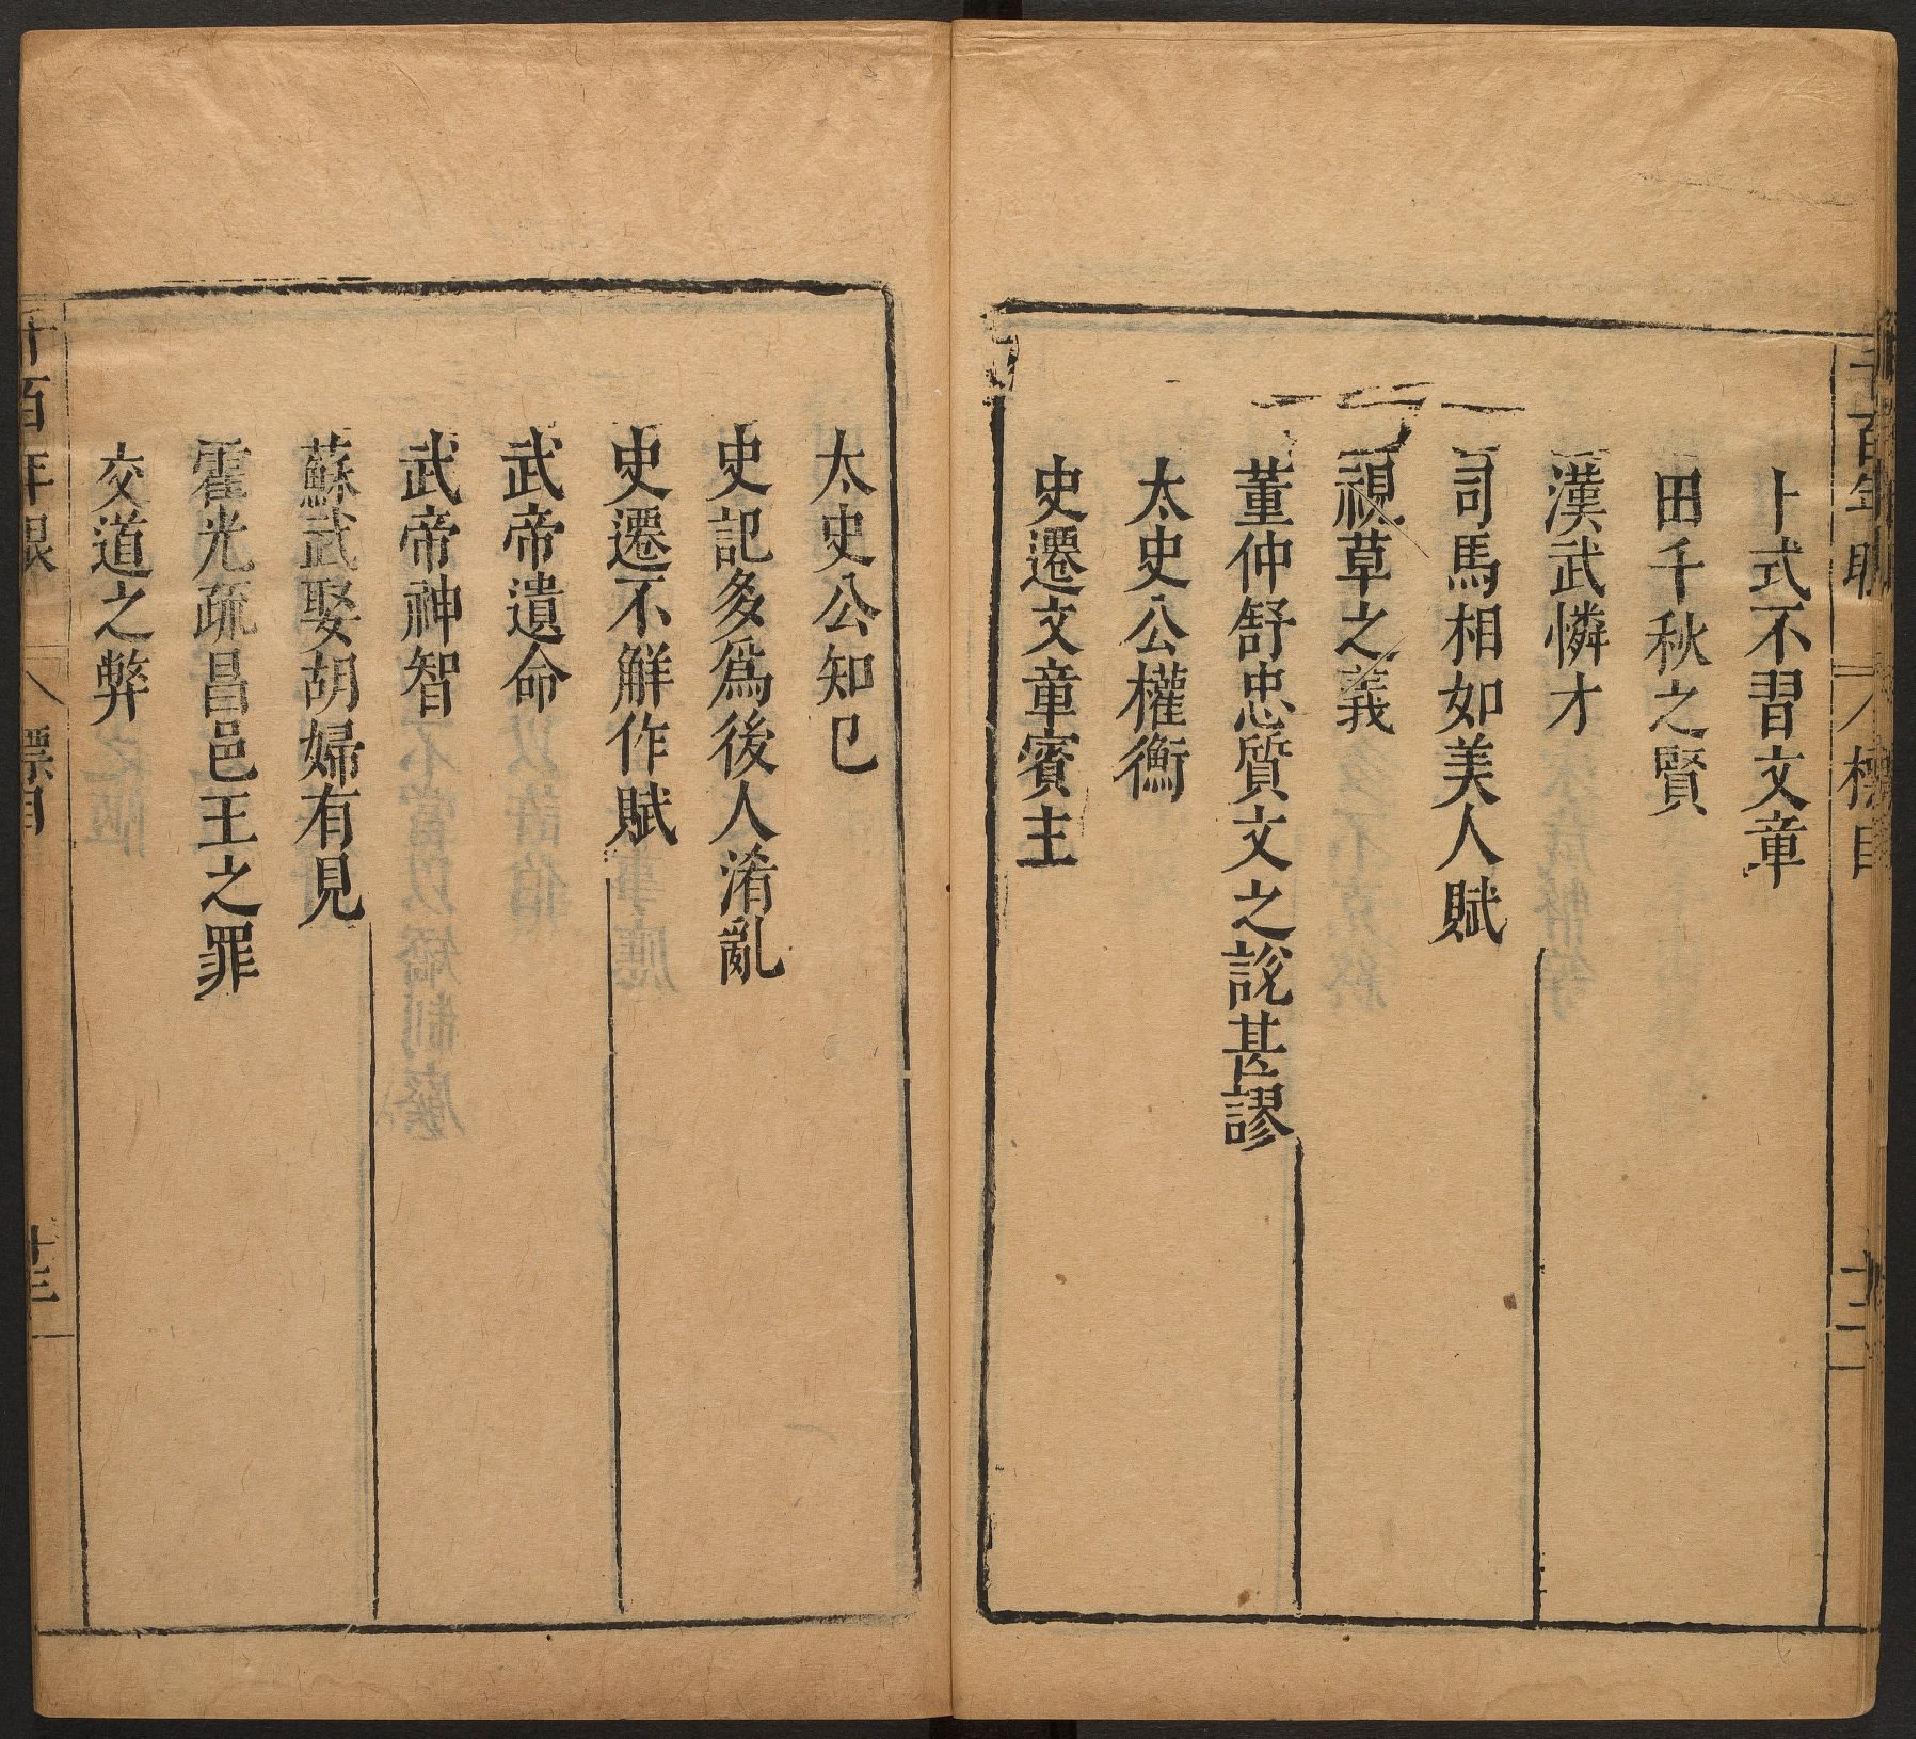 千百年眼 標目 十二
卜式不習文章
田千秋之賢
漢武憐才
司馬相如美人賦
視草之義
董仲舒忠質文之說甚謬
太史公權衡
史遷文章賓主
太史公知己
史記多爲後人淆亂
史遷不解作賦
武帝遺命
武帝神智
蘇武娶胡婦有見
霍光疏昌邑王之罪
交道之弊
千百年眼 標目 十三